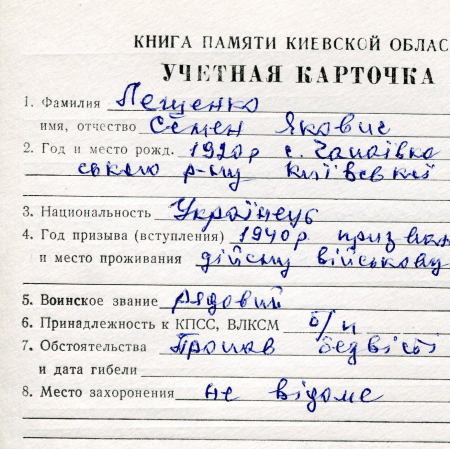 КНИГА ПАМЯТИ КИЕВСКОЙ ОБЛАС
УЧЕТНАЯ КАРТОЧКА
1. Фамилия Лещенко
имя, отчество Семен Якович
2. Год и место рожд. 1920р с. Чапаївка
ського р-ну Київської
3. Национальность Українець
4. Год призыва (вступления) 1940р призван
и место проживания дійсну військову
5. Воинское звание рядовий
6. Принадлежность к КПСС, ВЛКСМ б/п
7. Обстоятельства Пропав безвісті
и дата гибели
8. Место захоронения не відоме